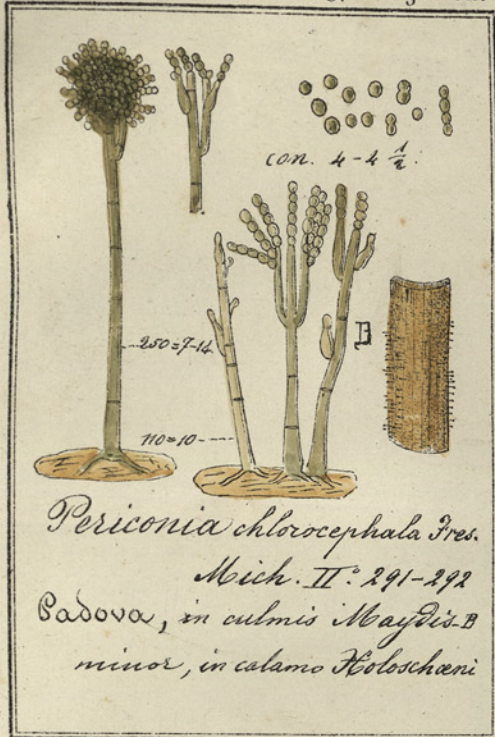 con. 4-4 ½.
B
250=7-14
110=10
Periconia chlorocephala Fres.
Mich. II.° 291-292
Padova, in culmis Maydis-B
minor, in calamo Holoschœni